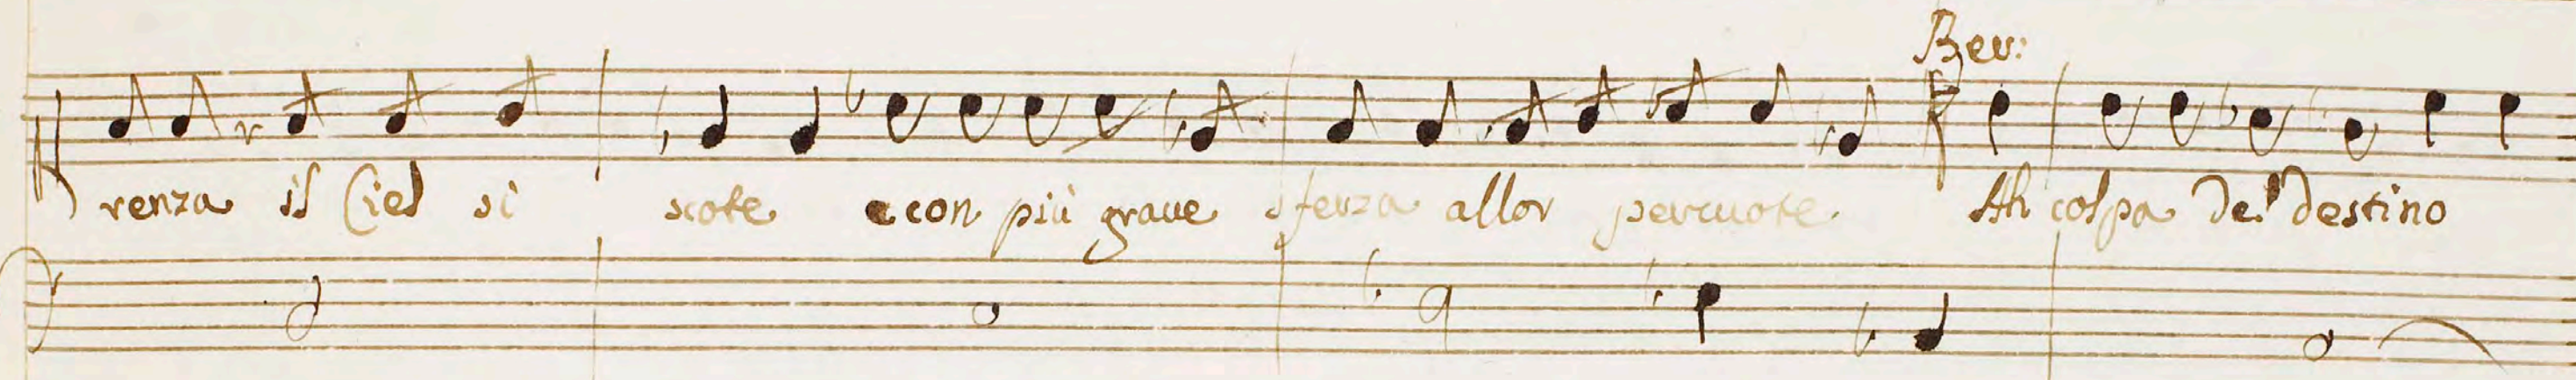 Ber:
renza il Ciel si scote e con più graue sferza allor percuote. Ah colpa del destino